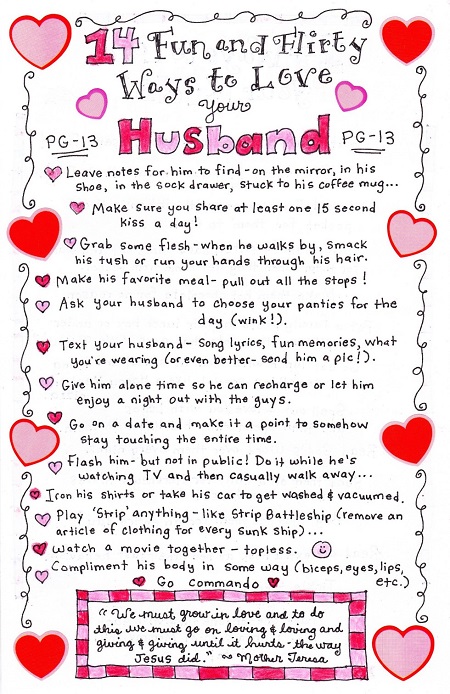 14 Fun and Flirty
Ways to Love
your
PG-13 Husband PG-13
Leave notes for him to find - on the mirror, in his
shoe, in the sock drawer, stuck to his coffee mug...
Make sure you share at least one 15 second
kiss a day!
Grab some flesh - when he walks by, smack
his tush or run your hands through his hair.
Make his favorite meal - pull out all the stops!
Ask your husband to choose your panties for the
day (wink!).
Text your husband - song lyrics, fun memories, what
you're wearing (or even better - send him a pic!).
Give him alone time so he can recharge or let him
enjoy a night out with the guys.
Go on a date and make it a point to somehow
stay touching the entire time.
Flash him - but not in public! Do it while he's
watching TV and then casually walk away...
Iron his shirts or take his car to get washed & vacuumed.
Play 'Strip' anything - like Strip Battleship (remove an
article of clothing for every sunk ship)...
Watch a movie together - topless.
Compliment his body in some way (biceps, eyes, lips,
etc.)
Go Commando
"We must grow in love and to do
this we must go on loving & loving and
giving & giving until it hurts - the way
Jesus did." ~ Mother Teresa